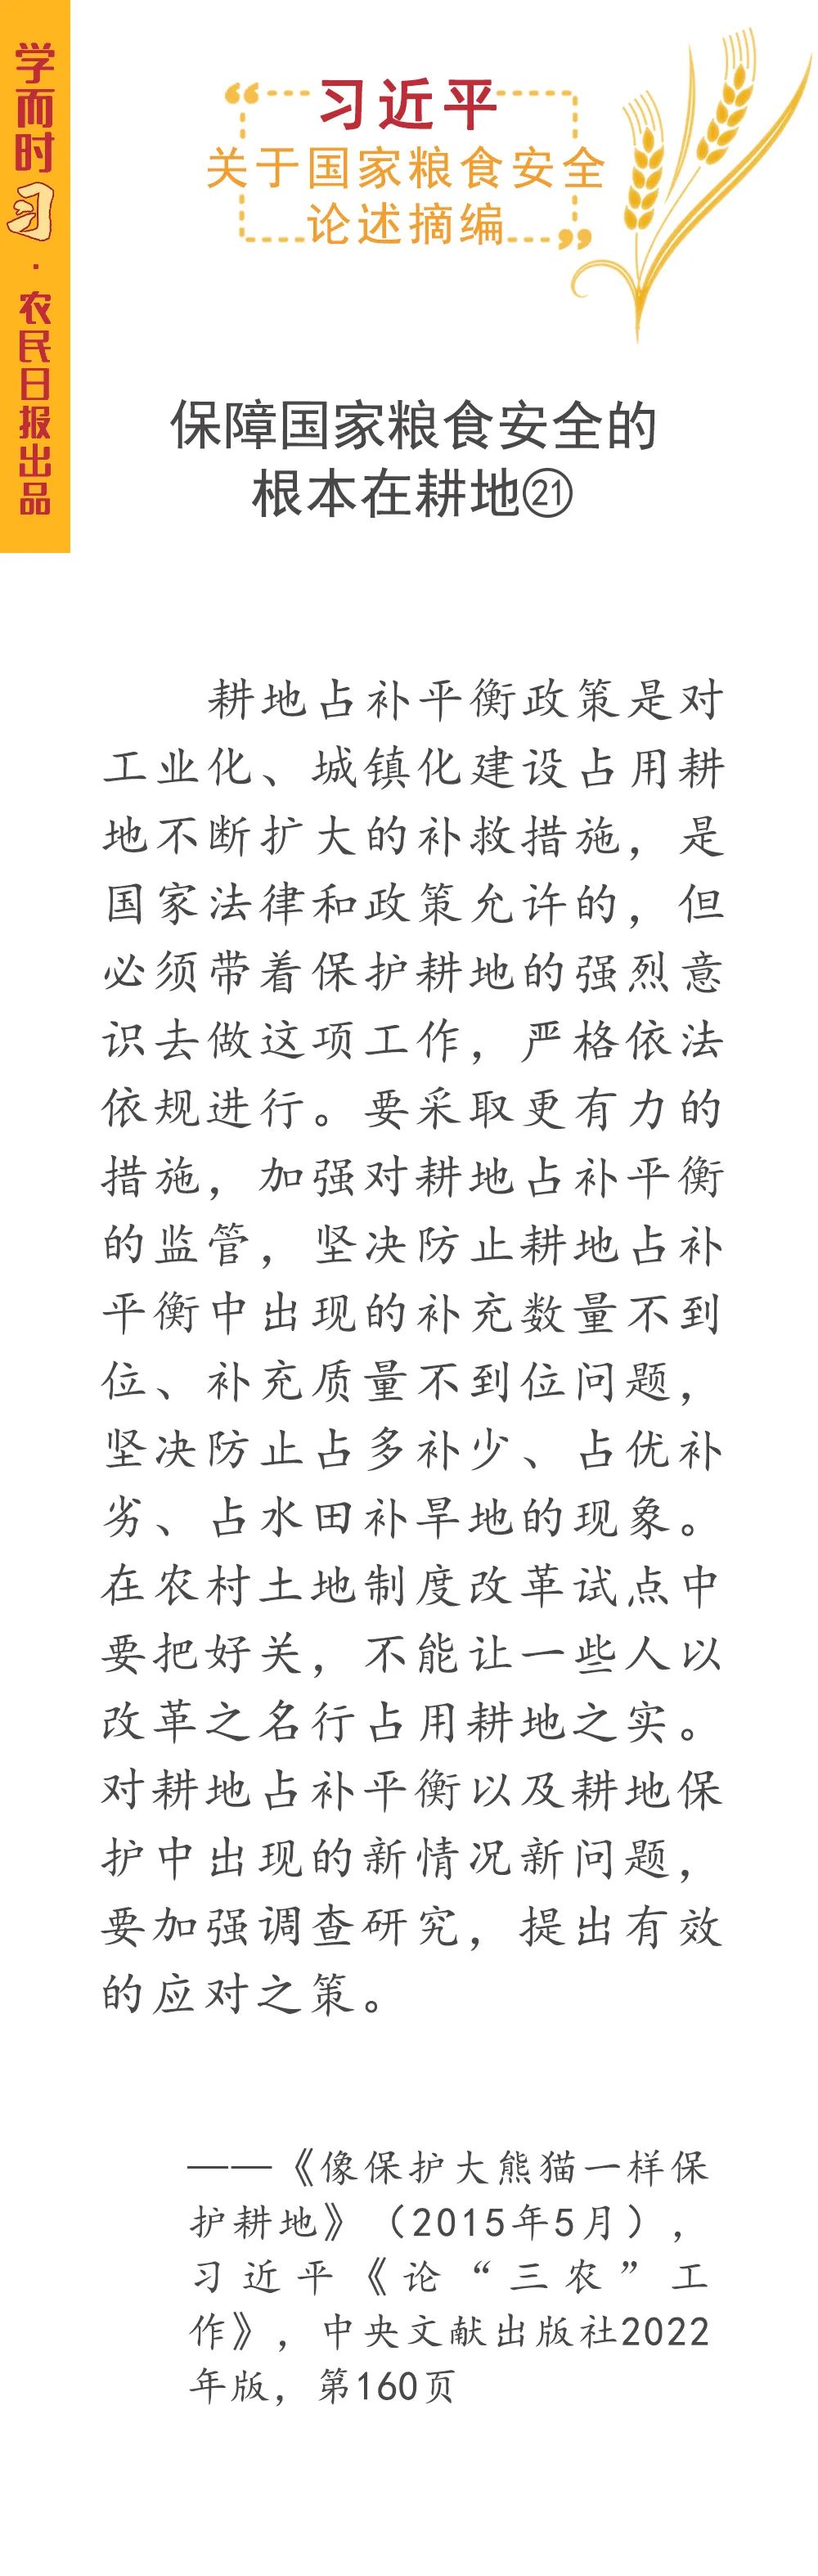 学而时习·农民日报出品
“习近平
关于国家粮食安全
论述摘编”
保障国家粮食安全的
根本在耕地㉑
耕地占补平衡政策是对
工业化、城镇化建设占用耕
地不断扩大的补救措施，是
国家法律和政策允许的，但
必须带着保护耕地的强烈意
识去做这项工作，严格依法
依规进行。要采取更有力的
措施，加强对耕地占补平衡
的监管，坚决防止耕地占补
平衡中出现的补充数量不到
位、补充质量不到位问题，
坚决防止占多补少、占优补
劣、占水田补旱地的现象。
在农村土地制度改革试点中
要把好关，不能让一些人以
改革之名行占用耕地之实。
对耕地占补平衡以及耕地保
护中出现的新情况新问题，
要加强调查研究，提出有效
的应对之策。
——《像保护大熊猫一样保
护耕地》（2015年5月），
习近平《论“三农”工
作》，中央文献出版社2022
年版，第160页